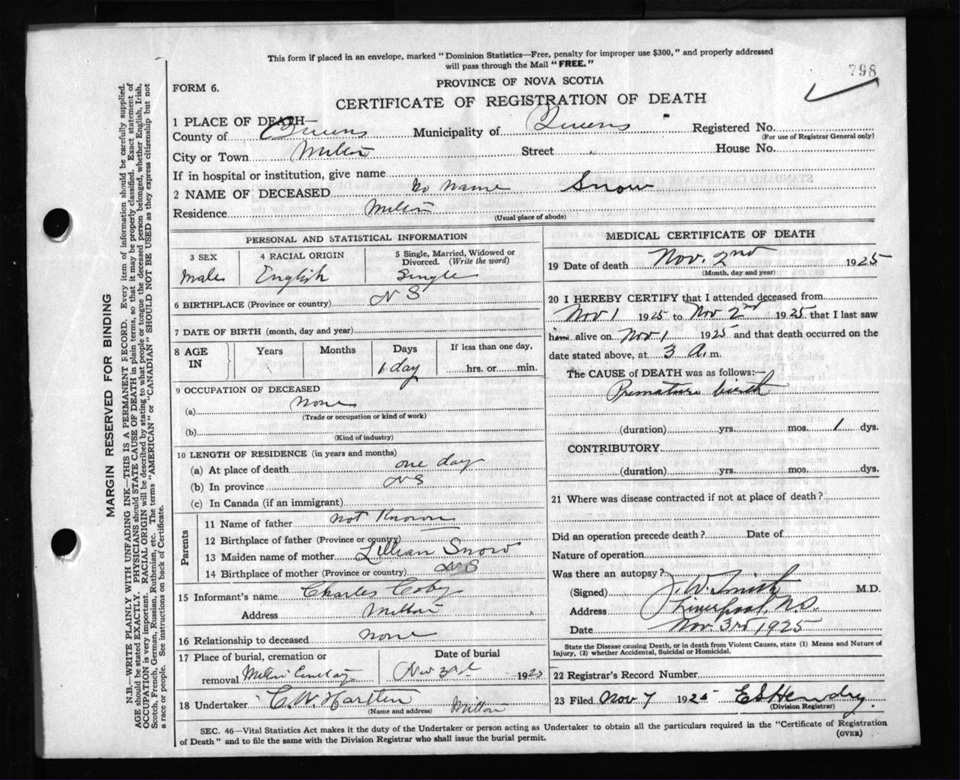 This form if placed in an envelope, marked "Dominion Statistics—Free, penalty for improper use $300," and properly addressed
will pass through the Mail "FREE."
798
FORM 6.
PROVINCE OF NOVA SCOTIA
CERTIFICATE OF REGISTRATION OF DEATH
1 PLACE OF DEATH—
County of Queens Municipality of Queens Registered No.
(For use of Registrar General only)
City or Town Milton Street House No.
If in hospital or institution, give name
2 NAME OF DECEASED No Name Snow
Residence Milton
(Usual place of abode)
PERSONAL AND STATISTICAL INFORMATION
3 SEX 4 RACIAL ORIGIN 5 Single, Married, Widowed or
Divorced. (Write the word)
Male English Single
6 BIRTHPLACE (Province or country) N S
7 DATE OF BIRTH (month, day and year)
8 AGE IN Years Months Days If less than one day,
1 day hrs. or min.
9 OCCUPATION OF DECEASED
(a) none
(Trade or occupation or kind of work)
(b)
(Kind of industry)
10 LENGTH OF RESIDENCE (in years and months)
(a) At place of death one day
(b) In province NS
(c) In Canada (if an immigrant)
Parents
11 Name of father not Known
12 Birthplace of father (Province or country)
13 Maiden name of mother Lillian Snow
14 Birthplace of mother (Province or country) NS
15 Informant's name Charles
Address Milton
16 Relationship to deceased none
17 Place of burial, cremation or Date of burial
removal Milton Cemetery Nov 3rd 1925
18 Undertaker C. W. Milton
(Name and address)
MEDICAL CERTIFICATE OF DEATH
19 Date of death Nov. 2nd 1925
(Month, day and year)
20 I HEREBY CERTIFY that I attended deceased from
Nov 1 1925 to Nov 2nd 1925 that I last saw
him alive on Nov 1 1925 and that death occurred on
date stated above, at 3 A. m.
The CAUSE of DEATH was as follows:—
Premature birth
(duration) yrs. mos. 1 dys.
CONTRIBUTORY
(duration) yrs. mos. dys.
21 Where was disease contracted if not at place of death?
Did an operation precede death? Date of
Nature of operation
Was there an autopsy?
(Signed) J. W. Smith M.D.
Address Liverpool, N.S.
Date Nov. 3rd 1925
State the Disease causing Death, or in death from Violent Causes, state (1) Means and Nature of
Injury, (2) whether Accidental, Suicidal or Homicidal.
22 Registrar's Record Number
23 Filed Nov 7 1925 E S Hendry
(Division Registrar)
SEC. 46—Vital Statistics Act makes it the duty of the Undertaker or person acting as Undertaker to obtain all the particulars required in the "Certificate of Registration
of Death" and to file the same with the Division Registrar who shall issue the burial permit.
(OVER)
MARGIN RESERVED FOR BINDING
N.B.—WRITE PLAINLY WITH UNFADING INK—THIS IS A PERMANENT RECORD. Every item of information should be carefully supplied.
AGE should be stated EXACTLY. PHYSICIANS should STATE CAUSE OF DEATH in plain terms, so that it may be properly classified. Exact statement of
OCCUPATION is very important. RACIAL ORIGIN will be described by stating to what people or tongue the deceased person belonged, whether English, Irish,
Scotch, French, German, Russian, Ruthenian, etc. The terms "AMERICAN" or "CANADIAN" SHOULD NOT BE USED as they express citizenship but not
a race or people. See instructions on back of Certificate.